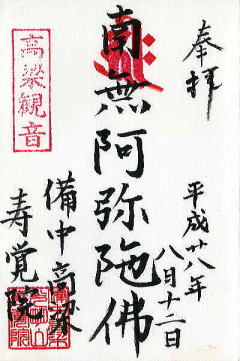 奉拝
平成廿八年
八月十二日
南無阿弥陀佛
高梁観音
備中高梁
寿覚院